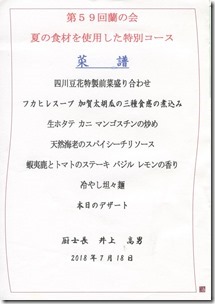 第59回蘭の会
夏の食材を使用した特別コース
菜譜
四川豆花特製前菜盛り合わせ
フカヒレスープ 加賀太胡瓜の三種食感の煮込み
生ホタテ カニ マンゴスチンの炒め
天然海老のスパイシーチリソース
蝦夷鹿とトマトのステーキ バジル レモンの香り
冷やし坦々麺
本日のデザート
厨士長 井上 高男
2018年7月18日